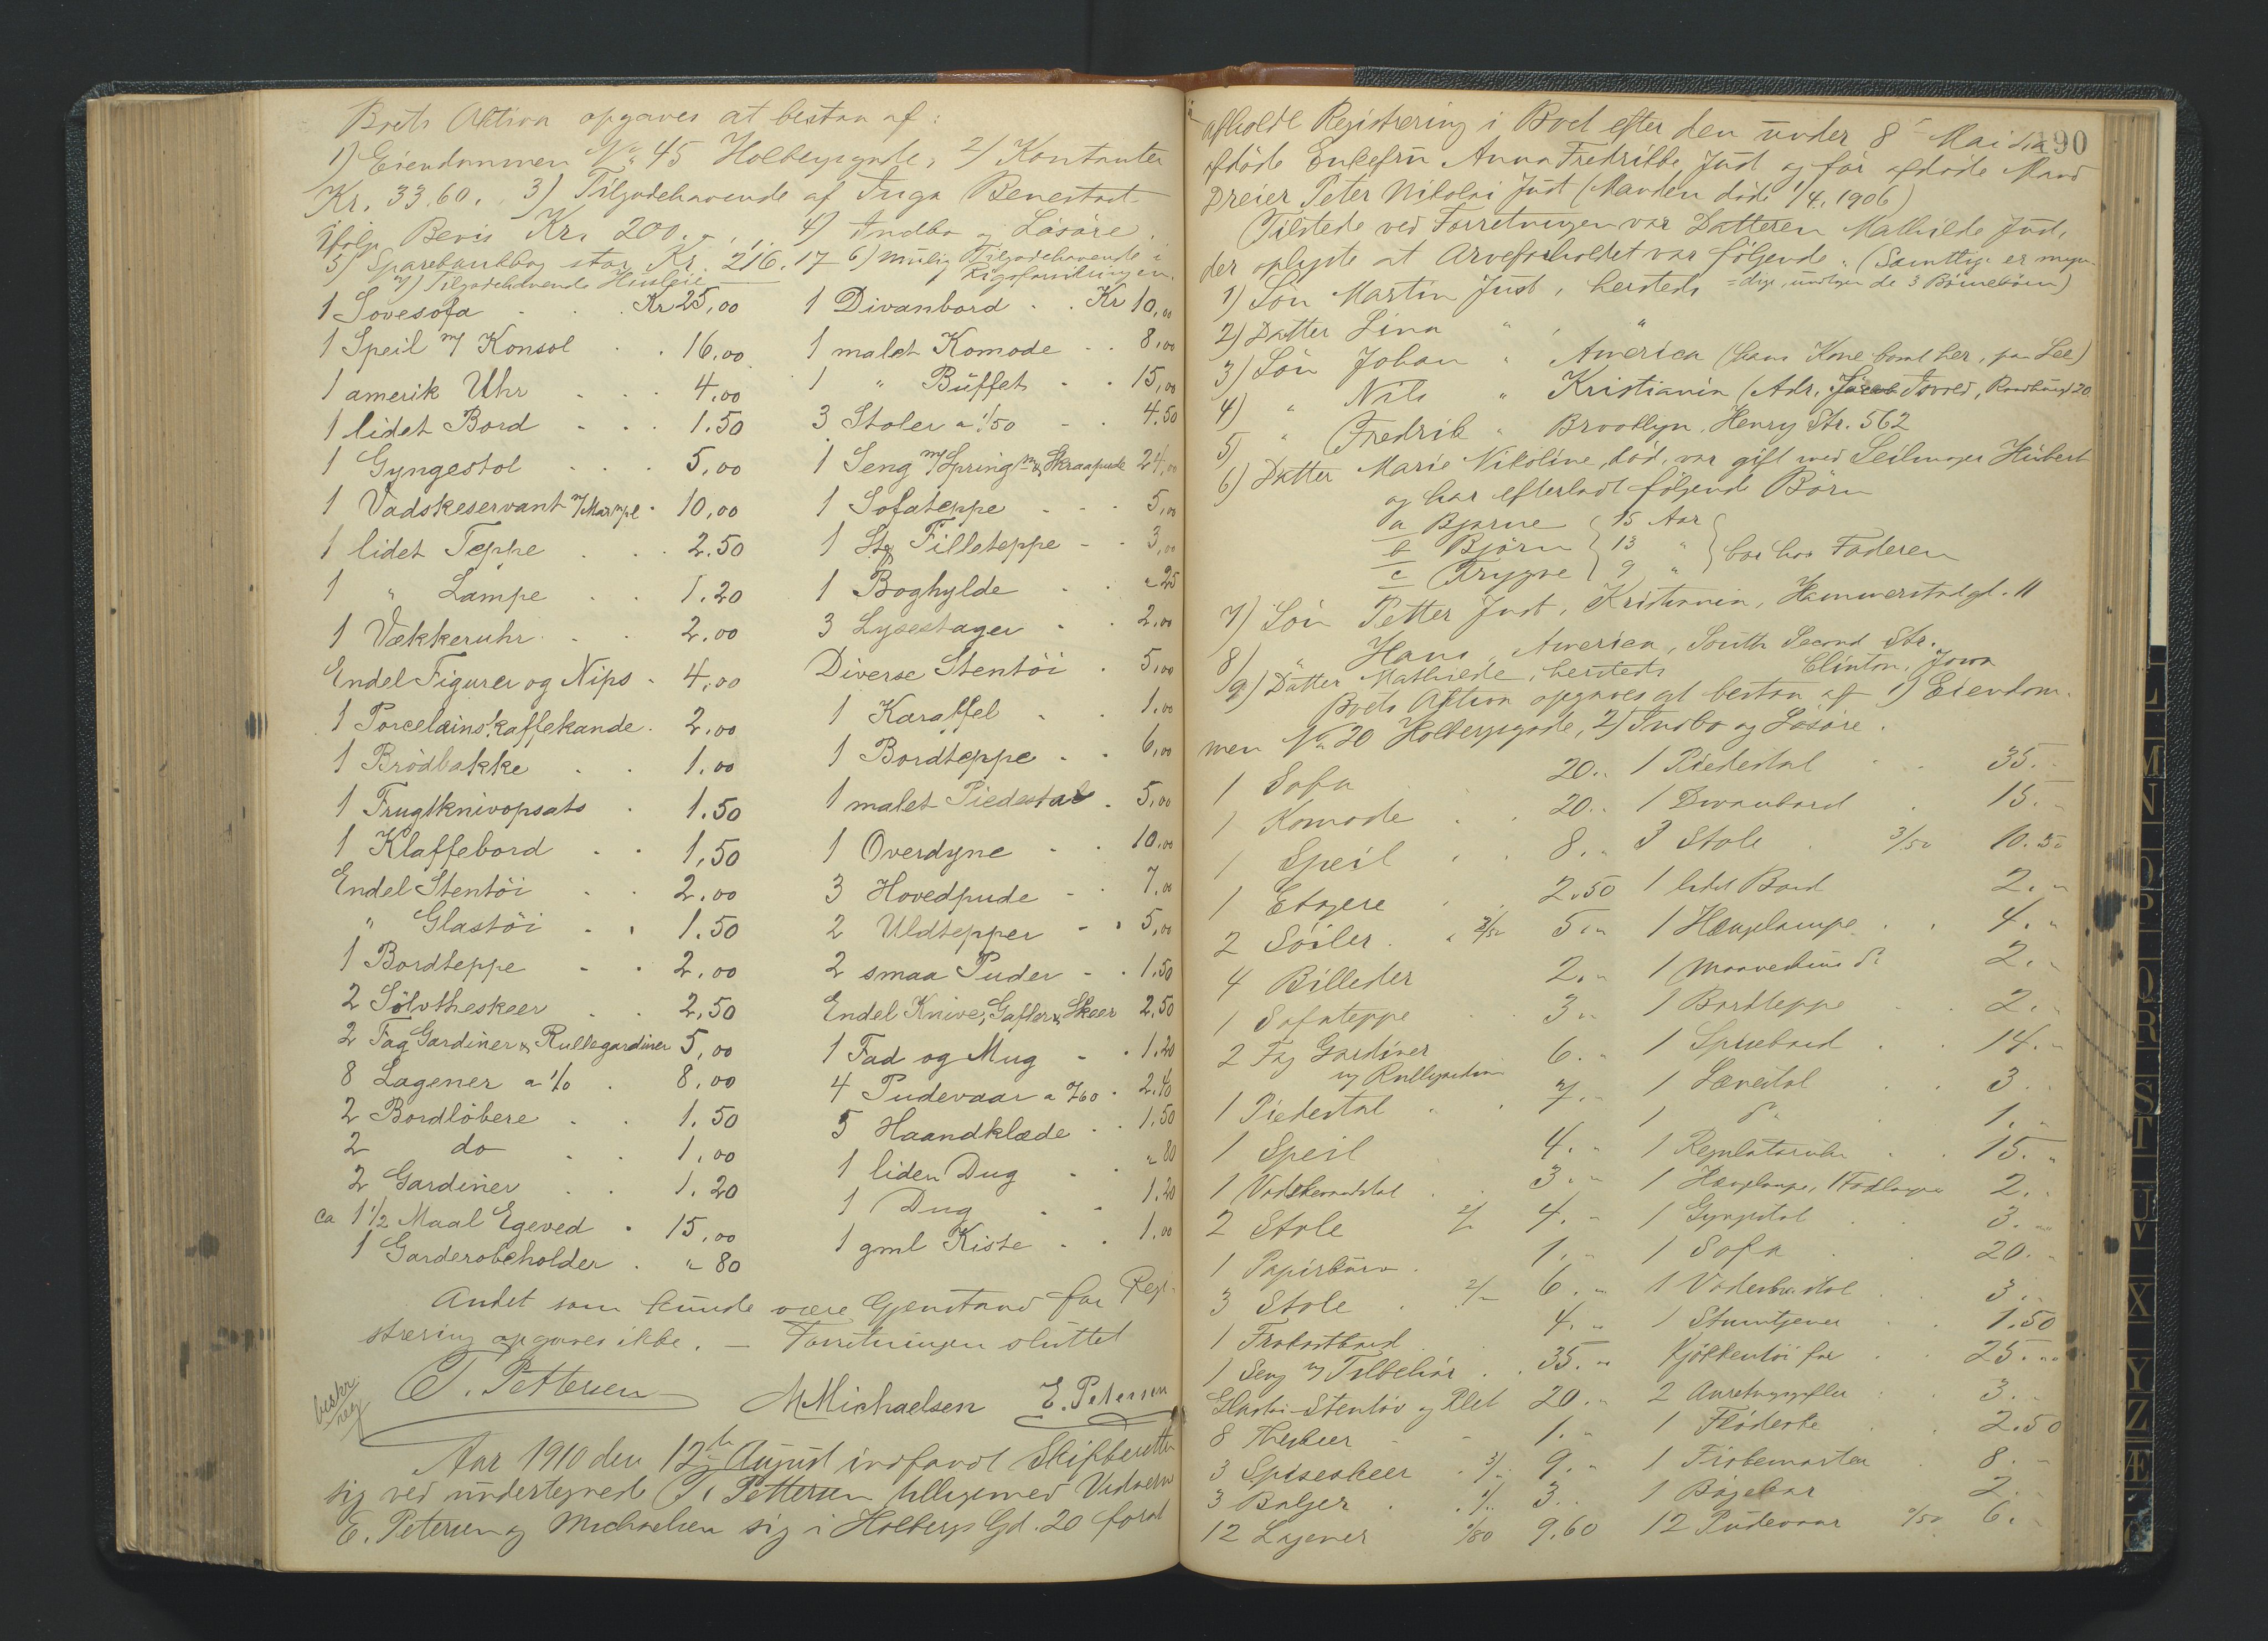 Boets Aktiva opgaves at bestaa af:
1) Eiendommen No 45 Holbergsgade, 2) Kontanter
Kr. 33.60. 3) Tilgodehavende af Inga Benestad
ifølge Bevis Kr. 200.-, 4) Indbo og Løsøre.
5) Sparebankbog stor Kr. 216.17 6) mulig Tilgodehavende i
7) Tilgodehavende Husleie Rigsforsikringen.
1 Sovesofa Kr 25,00
1 Speil m/ Konsol 16,00
1 amerik Uhr 4,00
1 lidet Bord 1.50
1 Gyngestol 5,00
1 Vadskeservant m/ Marmpl 10,00
1 lidet Teppe 2.50
1 " Lampe 1.20
1 Vækkeruhr 2,00
Endel Figurer og Nips 4,00
1 Porcelainskaffekande 2,00
1 Brödbakke 1.00
1 Frugtknivopsats 1.50
1 Klaffebord 1,50
Endel Stentöi 2.00
" Glastöi 1.50
1 Bordteppe 2,00
2 Sölvtheskeer 2,50
2 Fag Gardiner & Rullegardiner 5,00
8 Lagener a 1/0 8,00
2 Bordlöbere 1.50
2 do 1,00
2 Gardiner 1.20
ca 1 1/2 Maal Egeved 15,00
1 Garderobeholder " 80
1 Divanbord Kr 10,00
1 malet Komode 8,00
1 " Büffet 15,00
3 Stoler a 1/50 4.50
1 Seng m/ Spring m & Skraapude 24,00
1 Sofateppe 5,00
1 Stg Filleteppe 3,00
1 Boghylde " 25
3 Lysestager 2,00
Diverse Stentöi 5,00
1 Karaffel 1.00
1 Bordteppe 6,00
1 malet Piedestal 5,00
1 Overdyne 10,00
3 Hovedpude 7,00
2 Uldtepper 5,00
2 smaa Puder 1.50
Endel Knive, Gafler & Skeer 2.50
1 Fad og Mug 1.20
4 Pudevaar a "/60 2.40
5 Haandklæde 1.50
1 liden Dug " 80
1 Dug 1.20
1 gml Kiste 1.00
Andet som kunde være Gjenstand for Regi-
strering opgaves ikke. — Forretningen sluttet
T. Pettersen M Michaelsen E. Petersen
beskr.
Aar 1910 den 12te August indfandt Skifteretten
sig ved undertegnede T. Pettersen tilligemed Vidnerne
E. Petersen og Michaelsen sig i Holbergs Gd. 20 forat
190
afholde Registrering i Boet efter den under 8de Mai d.a.
afdøde Enkefru Anna Fredrikke Just og før afdøde Mand
Dreier Peter Nikolai Just (Manden døde 1/4.1906)
Tilstede ved Forretningen var Datteren Mathilde Just,
der oplyste at Arveforholdet var følgende: (Samtlige er myn-
1) Søn Martin Just, hersteds =dige, undtagen de 3 Børnebørn)
2) Datter Lina " , "
3) Søn Johan " America (hans Kone boet her, paa Lee)
4) " Nils " Kristiania (Adr. Torvold, 20
5) " Fredrik " Brooklyn, Henry Str. 562
6) Datter Marie Nikoline, død, var gift med Seilmager Hubert
og har efterladt følgende Børn
a Bjarne 15 Aar
b Björn 13 " bor hos Faderen
c Trygve 9 "
7) Søn Petter Just, Kristiania, Hammerstadgt. 11
8) " Hans, America, South Second Str.
Clinton, Jowa
9) Datter Mathilde, hersteds
Boets Aktiva opgaves at bestaa af 1) Eiendom-
men No 20 Holbergsgade, 2) Indbo og Løsøre.
1 Sofa 20.-
1 Komode 20.-
1 Speil 8.-
1 Etagere 2.50
2 Søiler 2/50 5.-
4 Billeder 2.-
1 Sofateppe 3.-
2 Fag Gardiner 6.-
og Rullegardin
1 Piedestal 7.-
1 Speil 4.-
1 Vadskevandstol 3.-
2 Stole 2/- 4.-
1 Papirkurv 1.-
3 Stole 2/- 6.-
1 Frokostbord 4.-
1 Seng og Tilbehør 35.-
Glastøi Stentøi og Plet 20.-
8 Theskeer 1.-
3 Spiseskeer 3/- 9.-
3 Balger 1/- 3.-
12 Lagener "/80 9.60
1 Piedestal 35.-
1 Divanbord 15.-
3 Stole 3/50 10.50
1 lidet Bord 2.-
1 Hængelampe 4.-
1 do 2.-
1 Bordteppe 2.-
1 Spisebord 14.-
1 Lænestol 3.-
1 do 1.-
1 Regulatoruhr 15.-
1 Hænglampe, 1 Stadlampe 2.-
1 Gyngestol 3.-
1 Sofa 20.-
1 3.-
1 Stumtjener 1.50
Kjøkkentøi for 25.-
2 Anretnings 3.-
1 Flødeske 2.50
1 8.-
1 2.-
12 Pudevaar "/50 6.-
L
M
N
O
P
Q
R
S
T
U
V
X
Y
Z
Æ